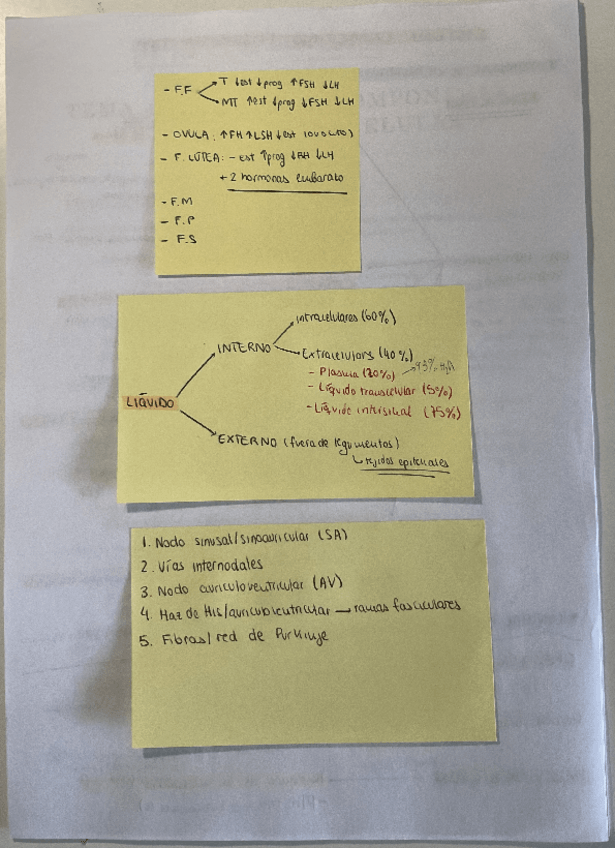 - F.F → T ↓est ↓prog ↑FSH ↓LH
→ MT ↑est ↓prog ↓FSH ↓LH
- OVULA: ↑FH ↑LSH ↓est (OVOCITO)
- F. LÚTEA: - est ↑prog ↓FH ↓LH
+ 2 hormonas embarazo
- F.M
- F.P
- F.S
LÍQUIDO
INTERNO
Intracelulares (60%)
Extracelulars (40%)
- Plasma (20%) → 93% H₂O
- Líquido transcelular (5%)
- Líquido intersisial (75%)
EXTERNO (fuera de tegumentos)
↳ tejidos epiteliales
1. Nodo sinusal/sinoauricular (SA)
2. Vías internodales
3. Nodo auriculoventricular (AV)
4. Haz de His/auriculoventricular → ramas fasciculares
5. Fibras/red de Purkinje